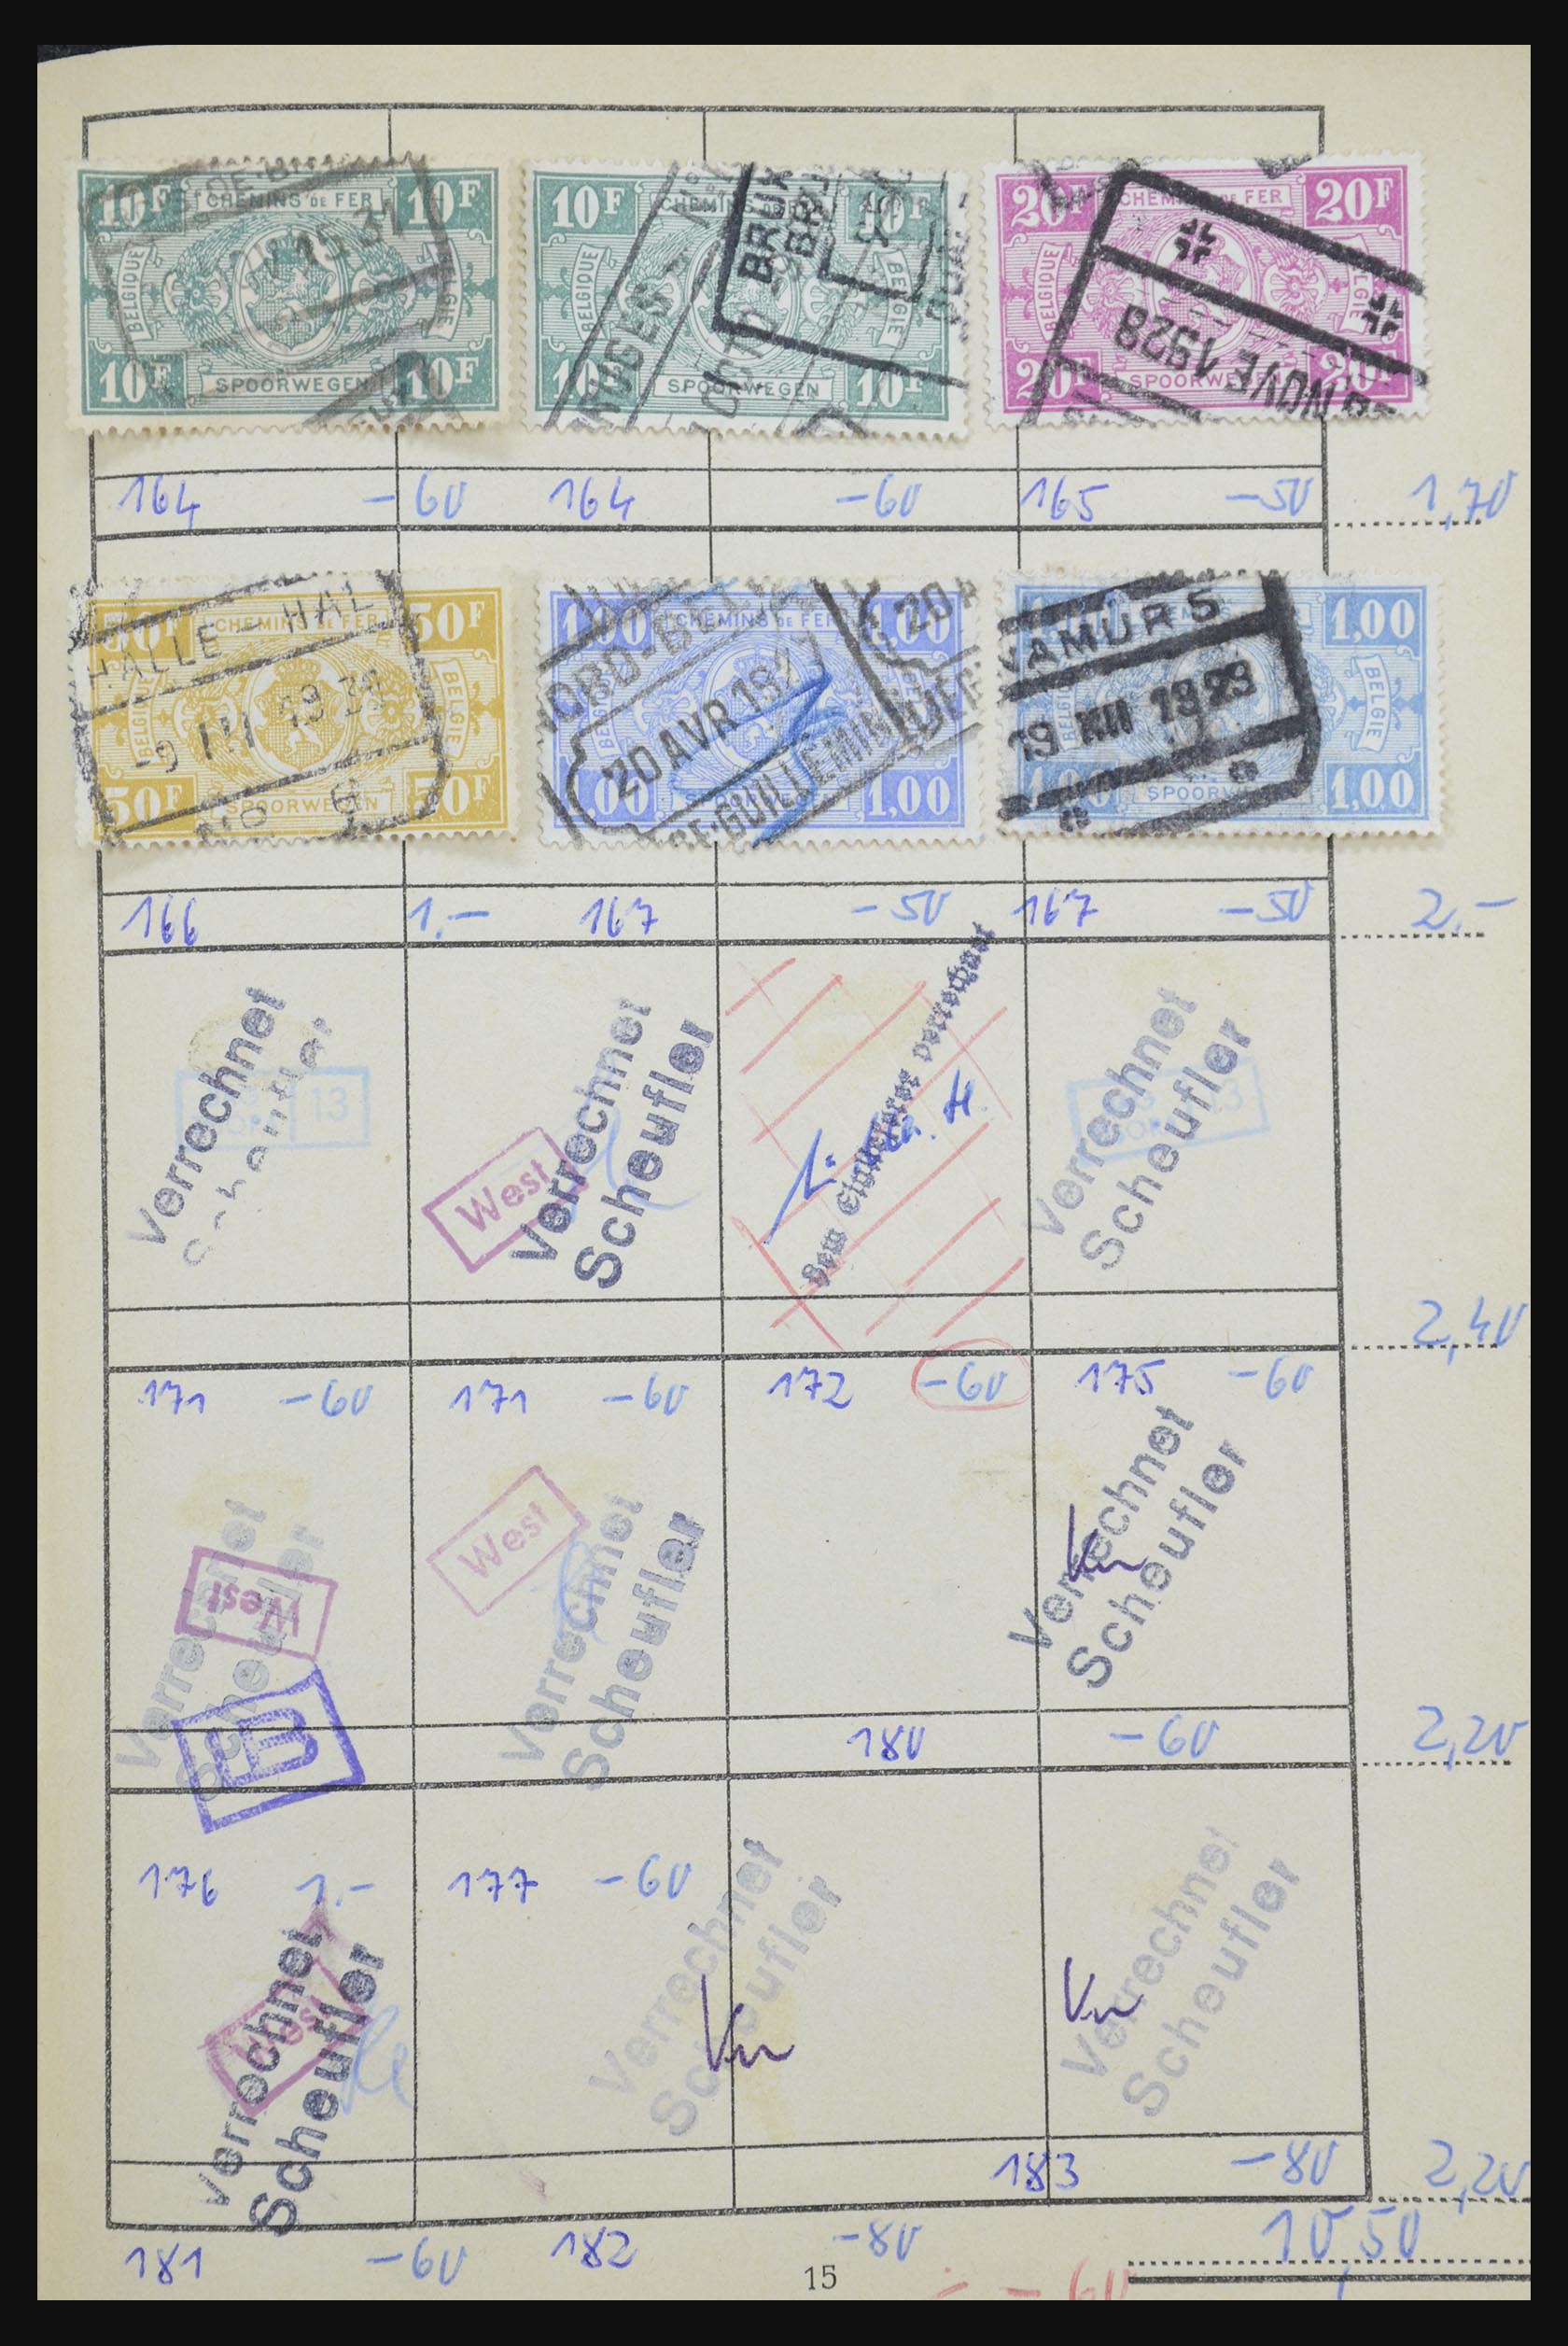 10F CHEMINS DE FER 10F
BELGIQUE BELGIE
V 15 31
10F SPOORWEGEN 10F
10F CHEMINS DE FER 10F
BELGIQUE BELGIE
BRUX
10F SPOORWEGEN 10F
20F CHEMINS DE FER 20F
BELGIQUE BELGIE
NOVE 1928
20F SPOORWEGEN 20F
164 -60 164 -60 165 -50 1,70
50F CHEMINS DE FER 50F
HALLE - HAL
BELGIE
50F SPOORWEGEN 50F
1,00 CHEMINS DE FER 1,00
NORD-BELGE
20 AVR 192
GUILLEMIN
1,00 1,00
NAMUR 5
1,00
19 XII 1929
BELGIE
SPOORWEGEN 1,00
166 1.- 167 -50 167 -50 2.-
Verrechnet
13
West
Verrechnet
Scheufler
Vom Einlieferer verrechnet
Verrechnet
Scheufler
2,40
171 -60 171 -60 172 -60 175 -60
Verrechnet
Scheufler
West
B
West
Verrechnet
Scheufler
Verrechnet
Scheufler
180 -60 2,20
176 1.- 177 -60
Verrechnet
Scheufler
West
Verrechnet
Scheufler
Verrechnet
Scheufler
183 -80 2,20
181 -60 182 -80 10,50
15
- 60